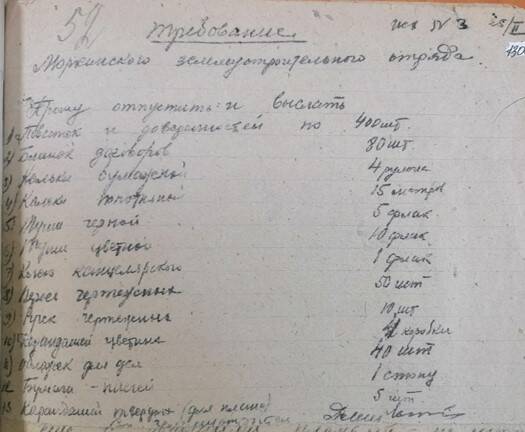 52
Требование исх № 3 25/II
Моркинского землеустроительного отряда.
Прошу отпустить и выслать
1) Повесток и доверенностей по 400 шт.
2) Бланок договоров 80 шт.
3) Кальки бумажной 4 рулона
4) Кальки полотняной 15 метров
5) Туши черной 5 флак
6) Туши цветной 10 флак
7) Клею канцелярского 1 флак
8) Перья чертежных 50 шт
9) Ручек чертежных 10 шт
10) Карандашей цветных 4 коробки
11) Обложек для дел 40 шт
12 Бумага - писчей 1 стопу
13 Карандашей твердых (для плана) 5 шт